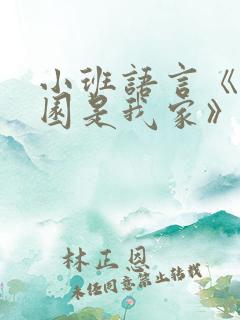 小班語言《
園是我家》
林正恩
未經同意禁止轉載